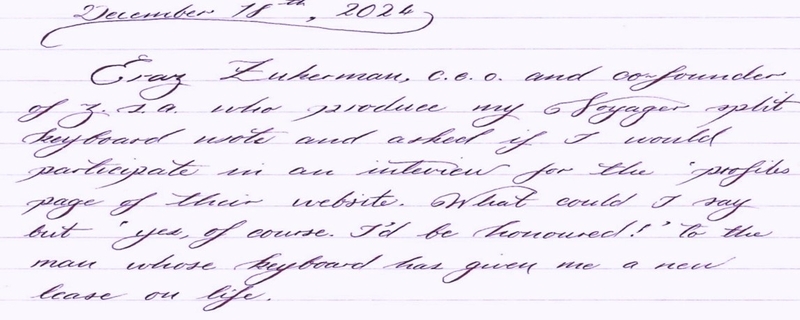 December 18th, 2024
Erez Zukerman, c.e.o. and co-founder
of z.s.a. who produce my Voyager split
keyboard wrote and asked if I would
participate in an interview for the 'profiles
page of their website. What could I say
but "yes, of course. I'd be honoured!" To the
man whose keyboard has given me a new
lease on life.